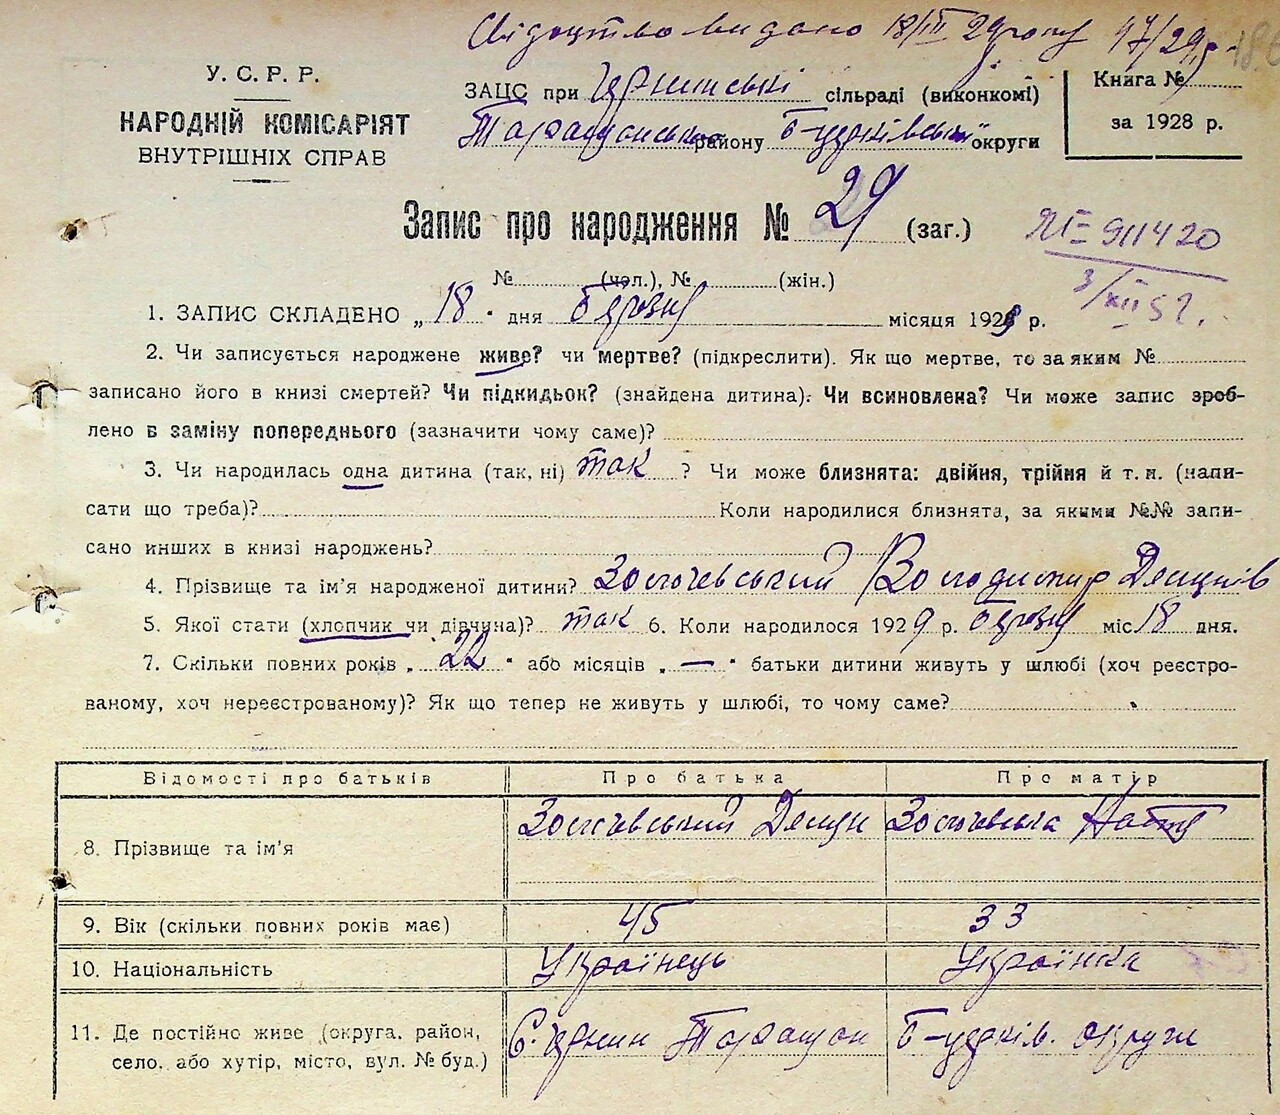 Свідоцтво видано 18/III 29 року 47/29 р.
У. С. Р. Р.
НАРОДНІЙ КОМІСАРІЯТ
ВНУТРІШНІХ СПРАВ
ЗАЦС при сільраді (виконкомі)
району округи
Книга №
за 1928 р.
Запис про народження № 29 (заг.)
ЯЕ 911420
3/XII 52.
№ (чол.), № (жін.)
1. ЗАПИС СКЛАДЕНО „18" дня березня місяця 1929 р.
2. Чи записується народжене живе? чи мертве? (підкреслити). Як що мертве, то за яким №
записано його в книзі смертей? Чи підкидьок? (знайдена дитина). Чи всиновлена? Чи може запис зроб-
лено в заміну попереднього (зазначити чому саме)?
3. Чи народилась одна дитина (так, ні) так ? Чи може близнята: двійня, трійня й т. и. (напи-
сати що треба)? Коли народилися близнята, за якими №№ запи-
сано инших в книзі народжень?
4. Прізвище та ім'я народженої дитини? Золочевський Володимир
5. Якої стати (хлопчик чи дівчина)? так 6. Коли народилося 1929 р. березня міс 18 дня.
7. Скільки повних років „ 22 " або місяців „ — " батьки дитини живуть у шлюбі (хоч реєстро-
ваному, хоч нереєстрованому)? Як що тепер не живуть у шлюбі, то чому саме?
Відомості про батьків Про батька Про матір
8. Прізвище та ім'я Золочевський Золочевська
9. Вік (скільки повних років має) 45 33
10. Національність Українець Українка
11. Де постійно живе (округа, район,
село, або хутір, місто, вул. № буд.) С. округи